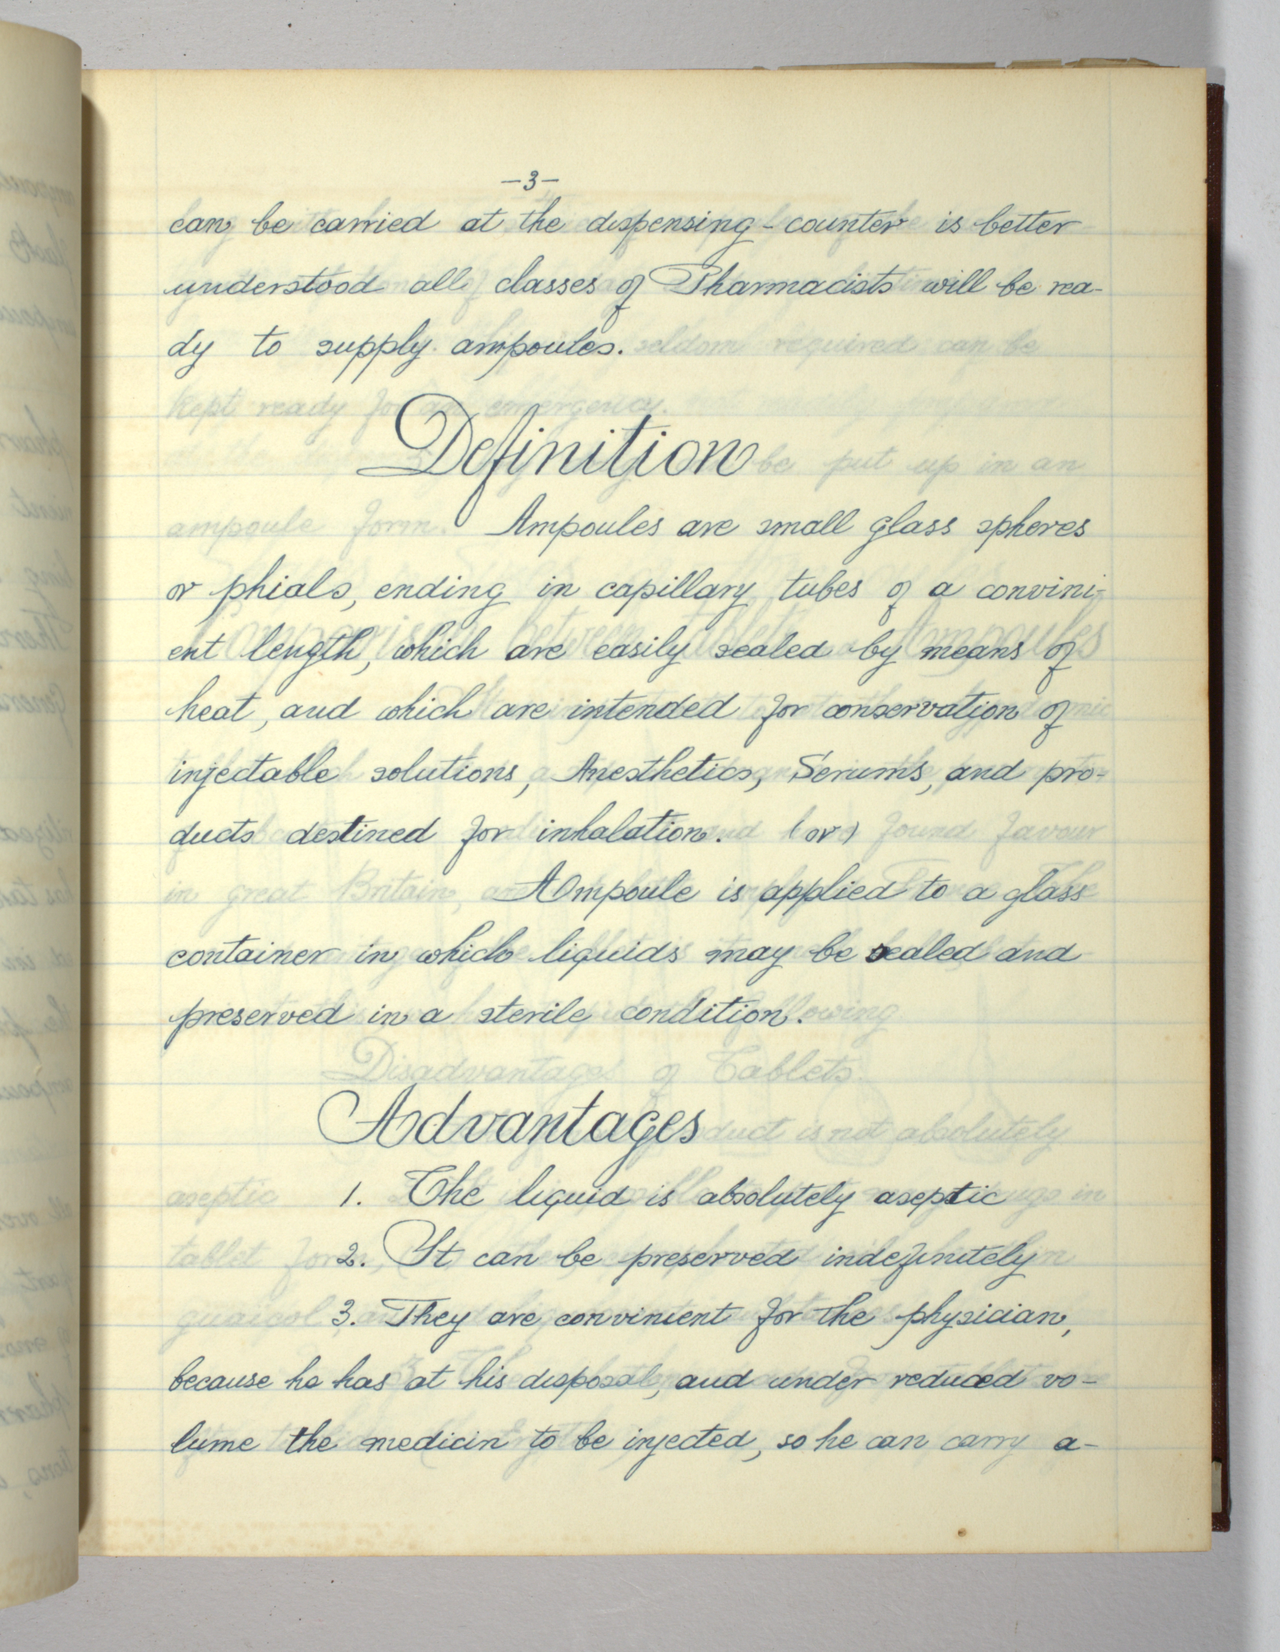 —3—
can be carried at the dispensing-counter is better
understood all classes of Pharmacists will be rea-
dy to supply ampoules.
Definition
Ampoules are small glass spheres
or phials, ending in capillary tubes of a convini-
ent length, which are easily sealed by means of
heat, and which are intended for conservation of
injectable solutions, Anesthetics, Serums, and pro-
ducts destined for inhalation. (or)
Ampoule is applied to a glass
container in which liquids may be sealed and
preserved in a sterile condition.
Advantages
1. The liquid is absolutely aseptic
2. It can be preserved indefinitely
3. They are convinient for the physician,
because he has at his disposal, and under reduced vo-
lume the medicin to be injected, so he can carry a-